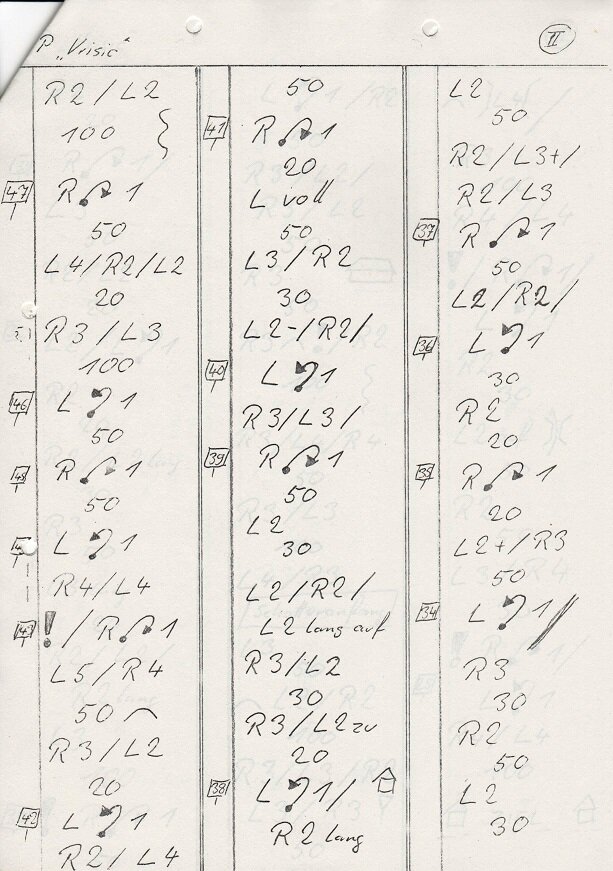 P „Vrisic“
II
R2 / L2
100
47 R 1
50
L4/R2/L2
20
R3 / L3
100
46 L 1
50
R 1
50
L 1
R4/L4
43 ! / R 1
L5 / R4
50
R3 / L2
20
42 L 1
R2/ L4
50
41 R 1
20
L voll
50
L3 / R2
30
L2-/R2/
40 L 1
R3/L3/
39 R 1
50
L2
30
L2/R2/
L2 lang auf
R3/L2
30
R3/L2 zu
20
38 L 1/
R2 lang
L2
50
R2/L3+/
R2/L3
37 R 1
50
L2/R2/
36 L 1
30
R2
20
35 R 1
20
L2+/R3
50
34 L 1//
R3
30
R2
50
L2
30